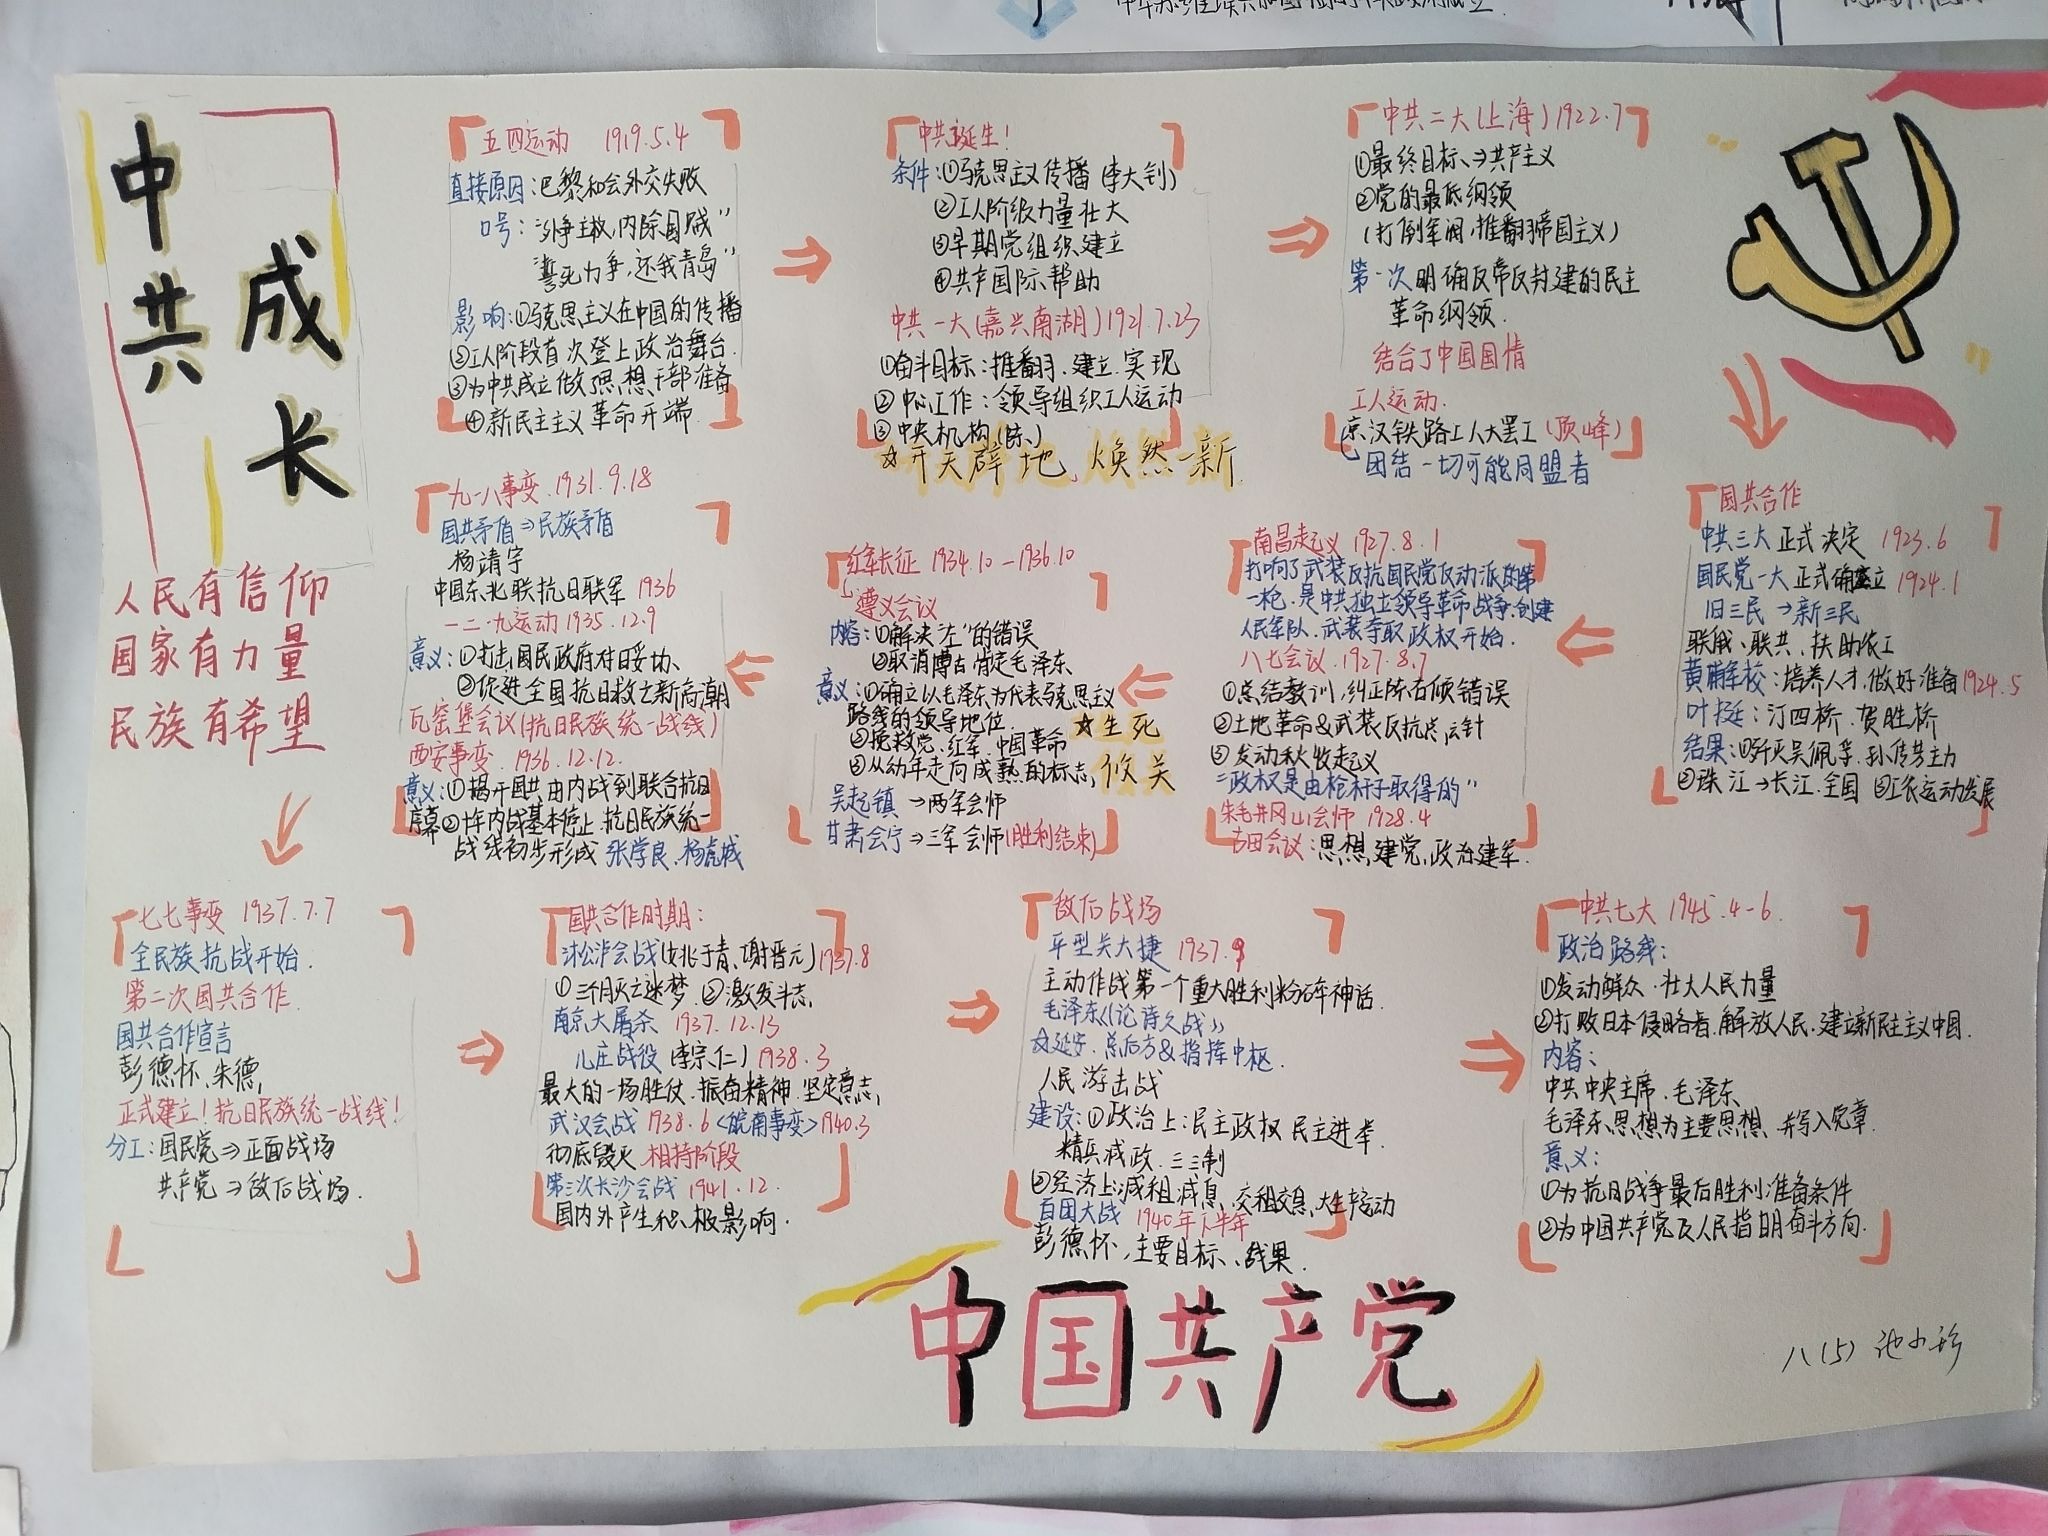 中共成长
人民有信仰
国家有力量
民族有希望
五四运动 1919.5.4
直接原因：巴黎和会外交失败
口号：“外争主权，内除国贼”
“誓死力争，还我青岛”
影响：①马克思主义在中国的传播
②工人阶段首次登上政治舞台.
③为中共成立做了思想干部准备
④新民主主义革命开端.
中共诞生！
条件：①马克思主义传播（李大钊）
②工人阶级力量壮大
③早期党组织建立
④共产国际帮助
中共一大(嘉兴南湖)1921.7.23
①奋斗目标：推翻.建立.实现
②中心工作：领导组织工人运动
③中央机构（陈.）
☆开天辟地，焕然一新.
中共二大(上海)1922.7
①最终目标⇒共产主义
②党的最低纲领
（打倒军阀，推翻帝国主义）
第一次明确反帝反封建的民主
革命纲领.
结合了中国国情
工人运动.
京汉铁路工人大罢工(顶峰)
团结一切可能同盟者
国共合作
中共三大正式决定 1923.6
国民党一大正式确立 1924.1
旧三民→新三民
联俄、联共、扶助农工
黄埔军校：培养人才，做好准备1924.5
叶挺：汀四桥.贺胜桥
结果：①歼灭吴佩孚.孙传芳主力
②珠江→长江.全国 ③工农运动发展
南昌起义 1927.8.1
打响了武装反抗国民党反动派的第
一枪.是中共独立领导革命战争.创建
人民军队.武装夺取政权开始.
八七会议.1927.8.7
①总结教训，纠正陈右倾错误
②土地革命&武装反抗总方针
③发动秋收起义
“政权是由枪杆子取得的”
朱毛井冈山会师 1928.4
古田会议：思想建党，政治建军.
红军长征 1934.10-1936.10
遵义会议
内容：①解决“左”的错误
②取消博古肯定毛泽东
意义：①确立以毛泽东为代表马克思主义
路线的领导地位.
②挽救党.红军.中国革命
③从幼年走向成熟的标志
☆生死攸关
吴起镇→两军会师
甘肃会宁→三军会师(胜利结束)
九一八事变.1931.9.18
国共矛盾⇒民族矛盾
杨靖宇
中国东北联抗日联军 1936
一二·九运动1935.12.9
意义：①打击国民政府对日妥协、
②促进全国抗日救亡新高潮
瓦窑堡会议(抗日民族统一战线)
西安事变.1936.12.12.
意义：①揭开国共由内战到联合抗日
序幕②十年内战基本停止.抗日民族统一
战线初步形成 张学良、杨虎城
七七事变 1937.7.7
全民族抗战开始.
第二次国共合作.
国共合作宣言
彭德怀、朱德，
正式建立！抗日民族统一战线！
分工：国民党⇒正面战场
共产党⇒敌后战场.
国共合作时期：
淞沪会战(姚子青、谢晋元)1937.8
①三个月灭亡迷梦 ②激发斗志
南京大屠杀 1937.12.13
儿庄战役(李宗仁)1938.3
最大的一场胜仗.振奋精神.坚定意志，
武汉会战 1938.6<皖南事变>1940.3
彻底毁灭.相持阶段
第三次长沙会战 1941.12.
国内外产生积极影响.
敌后战场
平型关大捷 1937.9
主动作战第一个重大胜利粉碎神话.
毛泽东《论持久战》
☆延安.总后方&指挥中枢.
人民游击战
建设：①政治上：民主政权 民主选举.
精兵减政.三三制
②经济上：减租减息、交租交息、大生产运动
百团大战 1940年下半年
彭德怀，主要目标、战果.
中共七大 1945.4-6.
政治路线：
①发动群众.壮大人民力量
②打败日本侵略者.解放人民.建立新民主主义中国.
内容：
中共中央主席.毛泽东
毛泽东思想为主要思想.并写入党章.
意义：
①为抗日战争最后胜利准备条件
②为中国共产党及人民指明奋斗方向.
中国共产党
八(5)